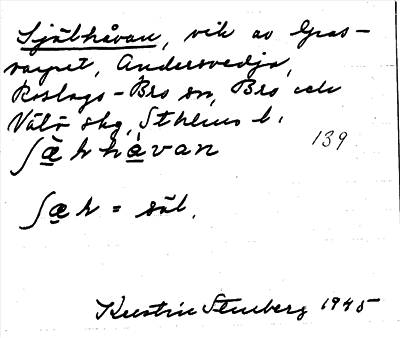 Själhåvan, vik av Gras-
varpet, Andersvedja,
Roslags-Bro sn, Bro och
Väto skg, Sthlms l.
139
ʃæ̀ɫhåvan
ʃæɫ = säl.
Kerstin Stenberg 1945